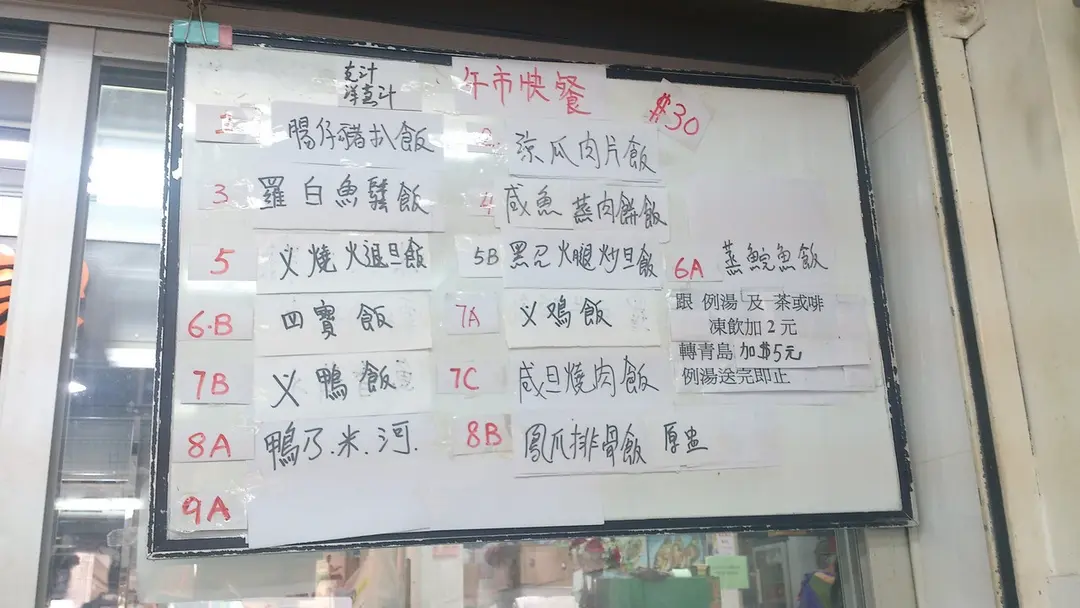 午市快餐 $30
羌汁
洋羌汁
1 腸仔豬扒飯
2 凉瓜肉片飯
3 羅白魚鬆飯
4 咸魚蒸肉餅飯
5 义燒火退旦飯
5B 黑忍火腿炒旦飯
6A 蒸鯇魚飯
6.B 四寶飯
7A 义鴉飯
跟 例湯 及 茶或啡
凍飲加2元
轉青島 加$5元
例湯送完即止
7B 义鴨飯
7C 咸旦燒肉飯
8A 鴨乃.米.河.
8B 鳳爪排骨飯 原盅
9A